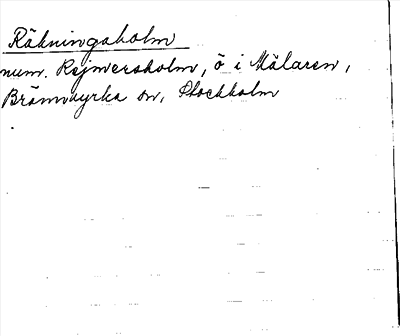 Räkningaholm
num. Rejmersholm, ö i Mälaren,
Brännkyrka sn, Stockholm